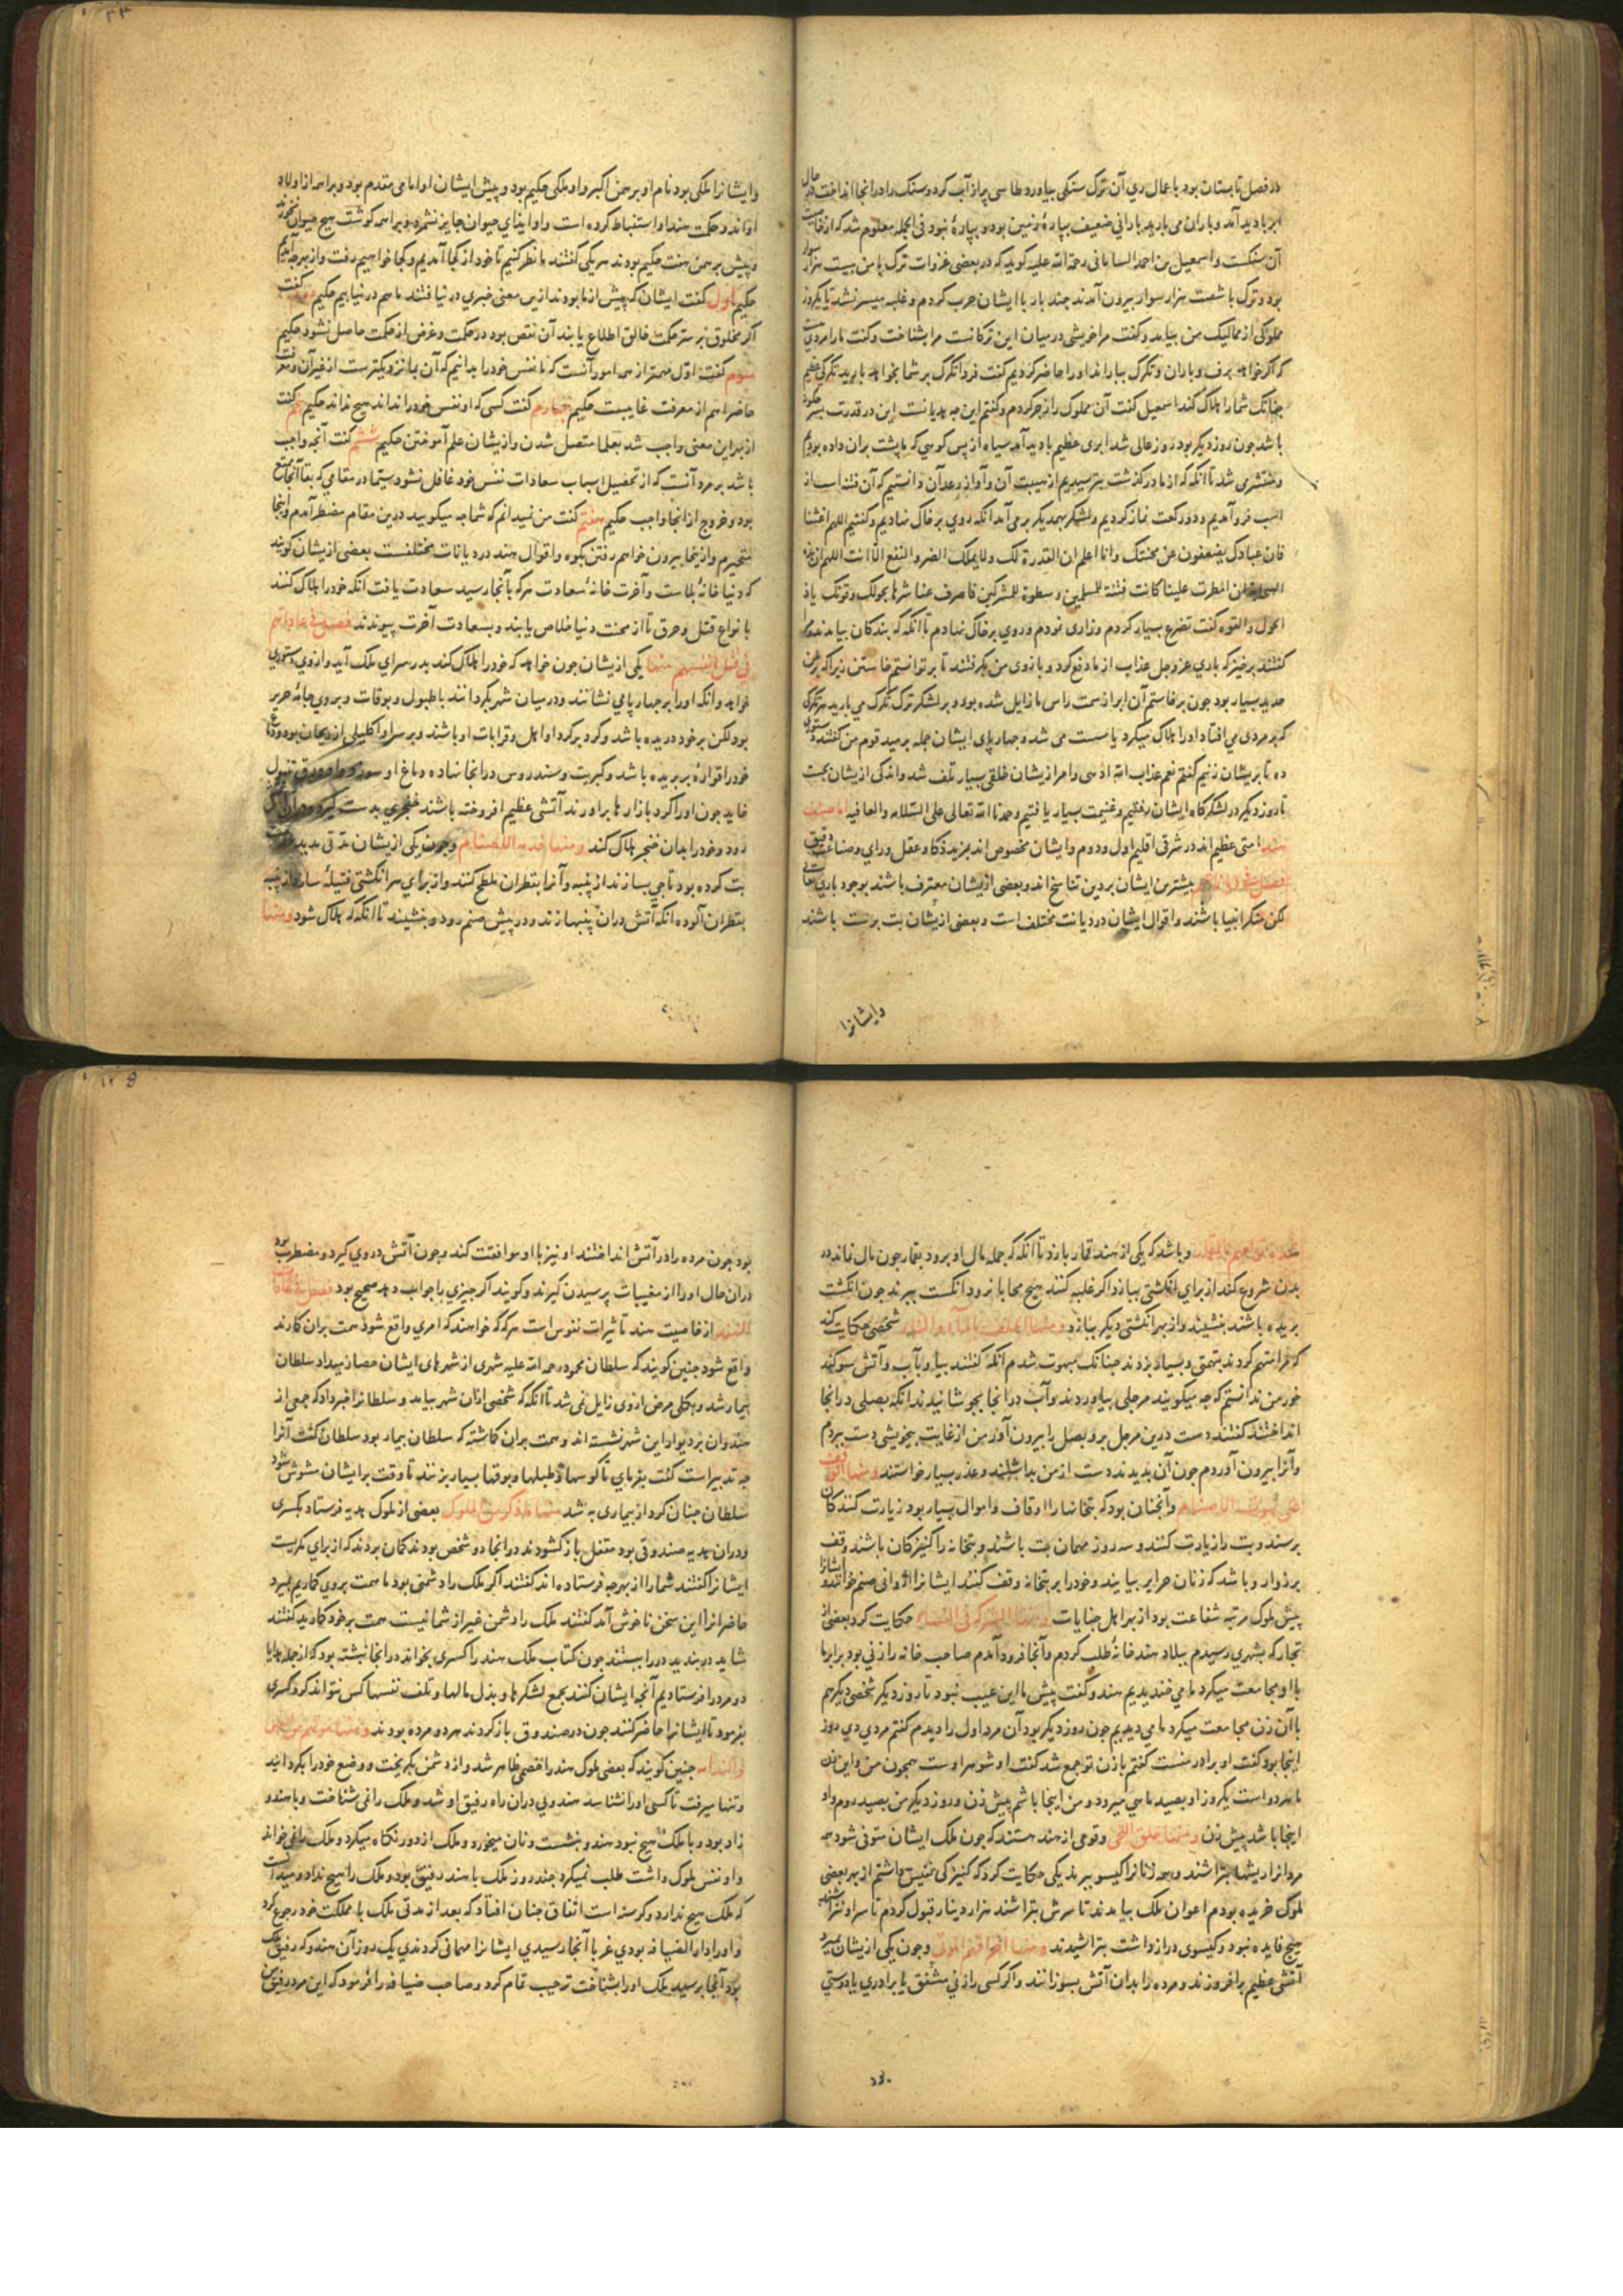 در فصل تابستان بود با عمال ری آن ترک سنکی بیاورد و طاسی پر از آب کرد و سنک را در انجا انداخت در حال
ابر بادید آمد و باران می بارید بارانی ضعیف بپارهٔ زمین بود و بپارهٔ نبود فی الجمله معلوم شد که از خاصیت
آن سنکست و اسمعیل بن احمد السامانی رحمة الله علیه کوید که در بعضی غزوات ترک با من بیست هزار سوار
بود و ترک با شصت هزار سوار بیرون آمدند چند بار با ایشان حرب کردم و غلبه میسر نشد تا یکروز
مملوکی از ممالیک من بیامد و کفت مرا خویشی در میان این ترکانست مرا بشناخت و کفت ما را مردی
که اکر خواهد برف و باران و تکرک بباراند او را حاضر کردیم کفت فردا تکرک بر شما بخواهد بارید تکرکی عظیم
چنانک شما را هلاک کند اسمعیل کفت آن مملوک را زجر کردم و کفتم این چه هدیانست این در قدرت بشر چکونه
باشد چون روز دیکر بود روز عالی شد ابری عظیم بادید آمد سیاه از پس کوهی که ما پشت بران داده بودیم
و منتشر می شد تا انکه که از ما در کذشت بترسیدیم از هیبت آن و آواز رعد آن دانستیم که آن فتنه است از
اسب فرو آمدیم و دو رکعت نماز کردیم و لشکر بهمدیکر بر می آمد انکه روی بر خاک نهادیم و کفتیم اللهم اغثنا
فان عبادک یضعفون عن محنتک و انا اعلم ان القدرة لک و لا یملک الضر و النفع الا انت اللهم ان هذه
السحابة ان امطرت علینا کانت فتنة للمسلمین و سطوة للمشرکین فاصرف عنا شرها بحولک و قوتک یا ذا
الحول و القوه کفت تضرع بسیار کردم و زاری نمودم و روی بر خاک نهادم تا انکه که بندکان بیامدند و
کفتند برخیز که باری عز و جل عذاب از ما دفع کرد و بازوی من بکرفتند تا بر توانستم خاستن زیرا که بر من
حدید بسیار بود چون بر خاستم آن ابر از سمت راس ما زایل شده بود و بر لشکر ترک تکرک می بارید هر تکرک
که بر مردی می افتاد او را هلاک میکرد یا سست می شد و چهار پای ایشان جمله برمید قوم من کفتند دستوری
ده تا بریشان زنیم کفتم نعم عذاب الله ادهی و امر ازیشان خلقی بسیار تلف شد و اندکی ازیشان بجست
تا روز دیکر در لشکرکاه ایشان رفتیم و غنیمت بسیار یافتیم و حمدنا الله تعالی علی السلامه و العافیه اما صنف
هند امتی عظیم اند در شرقی اقلیم اول و دوم و ایشان مخصوص اند بمزید ذکا و عقل و رای و صناعت دقیق
بیشترین ایشان بر دین تناسخ اند و بعضی ازیشان معترف باشند بوجود باری تعالی
لکن منکر انبیا باشند و اقوال ایشان در دیانت مختلف است و بعضی ازیشان بت پرست باشند
وایشانرا
و ایشانرا ملکی بود نام او برهمن اکبر و او ملکی حکیم بود و پیش ایشان او امامی مقدم بود و براهمه از اولاد
او اند و حکمت هند او استنباط کرده است و او ایذای حیوان جایز نشمرد و براهمه کوشت هیچ حیوان نخورند
و پیش برهمن هفت حکیم بودند هر یکی کفتند ما نظر کنیم تا خود از کجا آمدیم و کجا خواهیم رفت و از بهر چه آمدیم
حکیم اول کفت ایشان که پیش از ما بودند ازین معنی خبری در نیافتند ما هم در نیابیم حکیم دوم کفت
اکر مخلوق بر سر حکمت خالق اطلاع یابد آن نقص بود در حکمت و غرض از حکمت حاصل نشود حکیم
سوم کفت اول مهمتر از همه امور آنست که ما نفس خود را بدانیم که آن بما نزدیکترست از غیر آن و معرفت
حاضر اهم از معرفت غایبست حکیم چهارم کفت کسی که او نفس خود را نداند هیچ نداند حکیم پنجم کفت
از بهر این معنی واجب شد بعلما متصل شدن و ازیشان علم آموختن حکیم ششم کفت آنچه واجب
باشد بر مرد آنست که از تحصیل اسباب سعادات نفس خود غافل نشود سیما در مقامی که بقا آنجا ممتنع
بود و خروج از انجا واجب حکیم هفتم کفت من نمیدانم که شما چه میکویید درین مقام مضطر آمدم و اینجا
متحیرم و از ینجا بیرون خواهم رفتن بکوه و اقوال هند در دیانات مختلفست بعضی ازیشان کویند
که دنیا خانهٔ بلاست و آخرت خانهٔ سعادت هر که بآنجا رسید سعادت یافت انکه خود را هلاک کنند
بانواع قتل و حرق تا از محنت دنیا خلاص یابند و بسعادت آخرت پیوندند فصل فی عاداتهم
فی قتل انفسهم منها یکی ازیشان چون خواهد که خود را هلاک کند بدر سرای ملک آید و از وی دستوری
خواهد و انکه او را بر چهار پایی نشانند و در میان شهر بکردانند با طبول و بوقات و بر وی جامهٔ حریر
بود لکن بر خود دریده باشد و کرد بر کرد او اهل و قرابات او باشند و بر سر او اکلیلی از ریحان بود و
خود را قوارهٔ بر بریده باشد و کبریت و سندروس در انجا نهاده دماغ او سوزد و او ورق تنبول
خاید چون او را کرد بازارها برآورند آتشی عظیم افروخته باشند خنجری بدست کیرد
رود و خود را بدان خنجر هلاک کند و منها خدمة اللصنام و چون یکی ازیشان مدتی مدید خدمت
بت کرده بود تاجی بسازند از پنبه و آنرا بقطران ملطخ کنند و از برای هر انکشتی فتیلهٔ سازند از پنبه
بقطران آلوده انکه آتش در ان پنبها زند و در پیش صنم رود و بنشیند تا انکه که هلاک شود و منها
وباشد که یکی از هند قمار بازد تا انکه که جمله مال او برود بقمار چون مال نماند در
بدن شروع کند از برای انکشتی ببازد اکر غلبه کنند هیچ محابا نرود انکست ببرند چون انکشت
بریده باشند بنشیند و از بهر انکشتی دیکر ببازد و منها الحلف بالماء و النار شخصی حکایت کند
که مرا متهم کردند بتهمتی و بسیار بزدند چنانک مبهوت شدم انکه کفتند بیا و بآب و آتش سوکند
خور من ندانستم که چه میکویند مرجلی بیاوردند و آب در انجا بجوشانیدند انکه بصلی در انجا
انداختند کفتند دست درین مرجل بر و بصل را بیرون آور من از غایت بیخویشی دست ببردم
و آنرا بیرون آوردم چون آن بدیدند دست از من بداشتند و عذر بسیار خواستند و منها الوقف
علی بیوت اللاصنام و آنچنان بود که بتخانها را اوقاف و اموال بسیار بود زیارت کنندکان
برسند و بت را زیارت کنند و سه روز مهمان بت باشند و بتخانه را کنیزکان باشند وقف
بر زوار و باشد که زنان حرایر بیایند و خود را بر بتخانه وقف کنند ایشانرا زوانی صنم خوانند و ایشانرا
پیش ملوک مرتبه شفاعت بود از بهر اهل جنایات و منها الشرکة فی النساء حکایت کرد بعضی از
تجار که بشهری رسیدم ببلاد هند خانهٔ طلب کردم و آنجا فرود آمدم صاحب خانه را زنی بود برابر ما
با او مجامعت میکرد ما می خندیدیم هندو کفت پیش ما این عیب نبود تا روز دیکر شخصی دیکر هم
با آن زن مجامعت میکرد ما می دیدیم چون روز دیکر بود آن مرد اول را دیدم کفتم مردی دی روز
اینجا بود کفت او برادر منست کفتم با زن تو جمع شد کفت او شوهر اوست همچون من و این زن
ما هر دو است یکروز او بصید ماهی میرود و من اینجا باشم پیش زن و روز دیکر من بصید روم و او
اینجا باشد پیش زن و منها حلق اللحی و قومی از هند هستند که چون ملک ایشان متوفی شود همه
مردانرا ریشها بتراشند و همه زنانرا کیسو ببرند یکی حکایت کرد که کنیزکی نفیس داشتم از بهر بعضی
ملوک خریده بودم اعوان ملک بیامدند تا سرش بتراشند هزار دینار قبول کردم تا سر او نتراشند
هیچ فایده نبود و کیسوی دراز داشت بتراشیدند و منها احراقهم الموتی و چون یکی ازیشان بمیرد
آتشی عظیم بر افروزند و مرده را بدان آتش بسوزانند و اکر کسی را زنی مشفق یا برادری یا دوستی
بود چون مرده را در آتش انداختند او نیز با او موافقت کند و چون آتش در وی کیرد و مضطرب بود
در ان حال او را از مغیبات پرسیدن کیرند و کویند اکر چیزی را جواب دهد صحیح بود فصل
للهنود از خاصیت هند تاثیرات نفوس است هر که که خواهند که امری واقع شود همت بران کمارند
واقع شود چنین کویند که سلطان محمود رحمه الله علیه شهری از شهرهای ایشان حصار میداد سلطان
بیمار شد و بکلی مرض از وی زایل نمی شد تا انکه که شخصی از ان شهر بیامد و سلطانرا خبر داد که جمعی از
هندوان بر دیوار این شهر نشسته اند و همت بران کماشته که سلطان بیمار بود سلطان کفت آنرا
چه تدبیر است کفت بفرمای تا کوسها و طبلها و بوقها بسیار بزنند تا وقت بر ایشان مشوش شود
سلطان چنان کرد از بیماری به شد بعضی از ملوک هدیه فرستاد بکسری
و در ان هدیه صندوقی بود مقفل باز کشودند در انجا دو شخص بودند کمان بردند که از برای مکریست
ایشانرا کفتند شما را از بهر چه فرستاده اند کفتند اکر ملک را دشمنی بود ما همت بر وی کماریم بمیرد
حاضرانرا این سخن ناخوش آمد کفتند ملک را دشمن غیر از شما نیست همت بر خود کمارید کفتند
شاید در بندید در را ببستند چون کتاب ملک هند را کسری بخواند در انجا نبشته بود که از جمله هدایا
دو مرد را فرستادیم آنچه ایشان کنند بجمع لشکرها و بذل مالها و تلف نفسها کس نتواند کرد کسری
بفرمود تا ایشانرا حاضر کنند چون در صندوق باز کردند هر دو مرده بودند
چنین کویند که بعضی ملوک هند را خصمی ظاهر شد و از دشمن بکریخت و وضع خود را بکردانید
و تنها میرفت تا کسی او را نشناسد هندویی در ان راه رفیق او شد و ملک را نمی شناخت و با هندو
زاد بود و با ملک هیچ نبود هندو بنشست و نان میخورد و ملک از دور نکاه میکرد و ملک را نمی خواند
و او نفس ملوک داشت طلب نمیکرد چند روز ملک با هند رفیق بود و ملک را هیچ نداد و میدانست
که ملک هیچ ندارد و کرسنه است اتفاق چنان افتاد که بعد از مدتی ملک با مملکت خود رجوع کرد
و او را دار الضیافه بودی غربا آنجا رسیدی ایشانرا مهمانی کردندی یک روز آن هندو که رفیق ملک
بود آنجا برسید ملک او را بشناخت ترحیب تمام کرد و صاحب ضیافه را فرمود که این مرد رفیق من